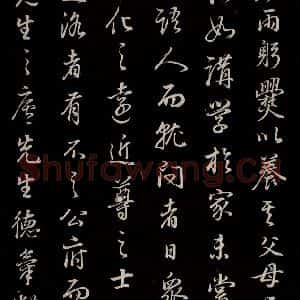 雨躬爨以養其父母
如講學於家未嘗
語人而就問者日眾
化之遠近尊之士
洛者有不之公府而
先生之廬先生德氣
Shufawang.Cn